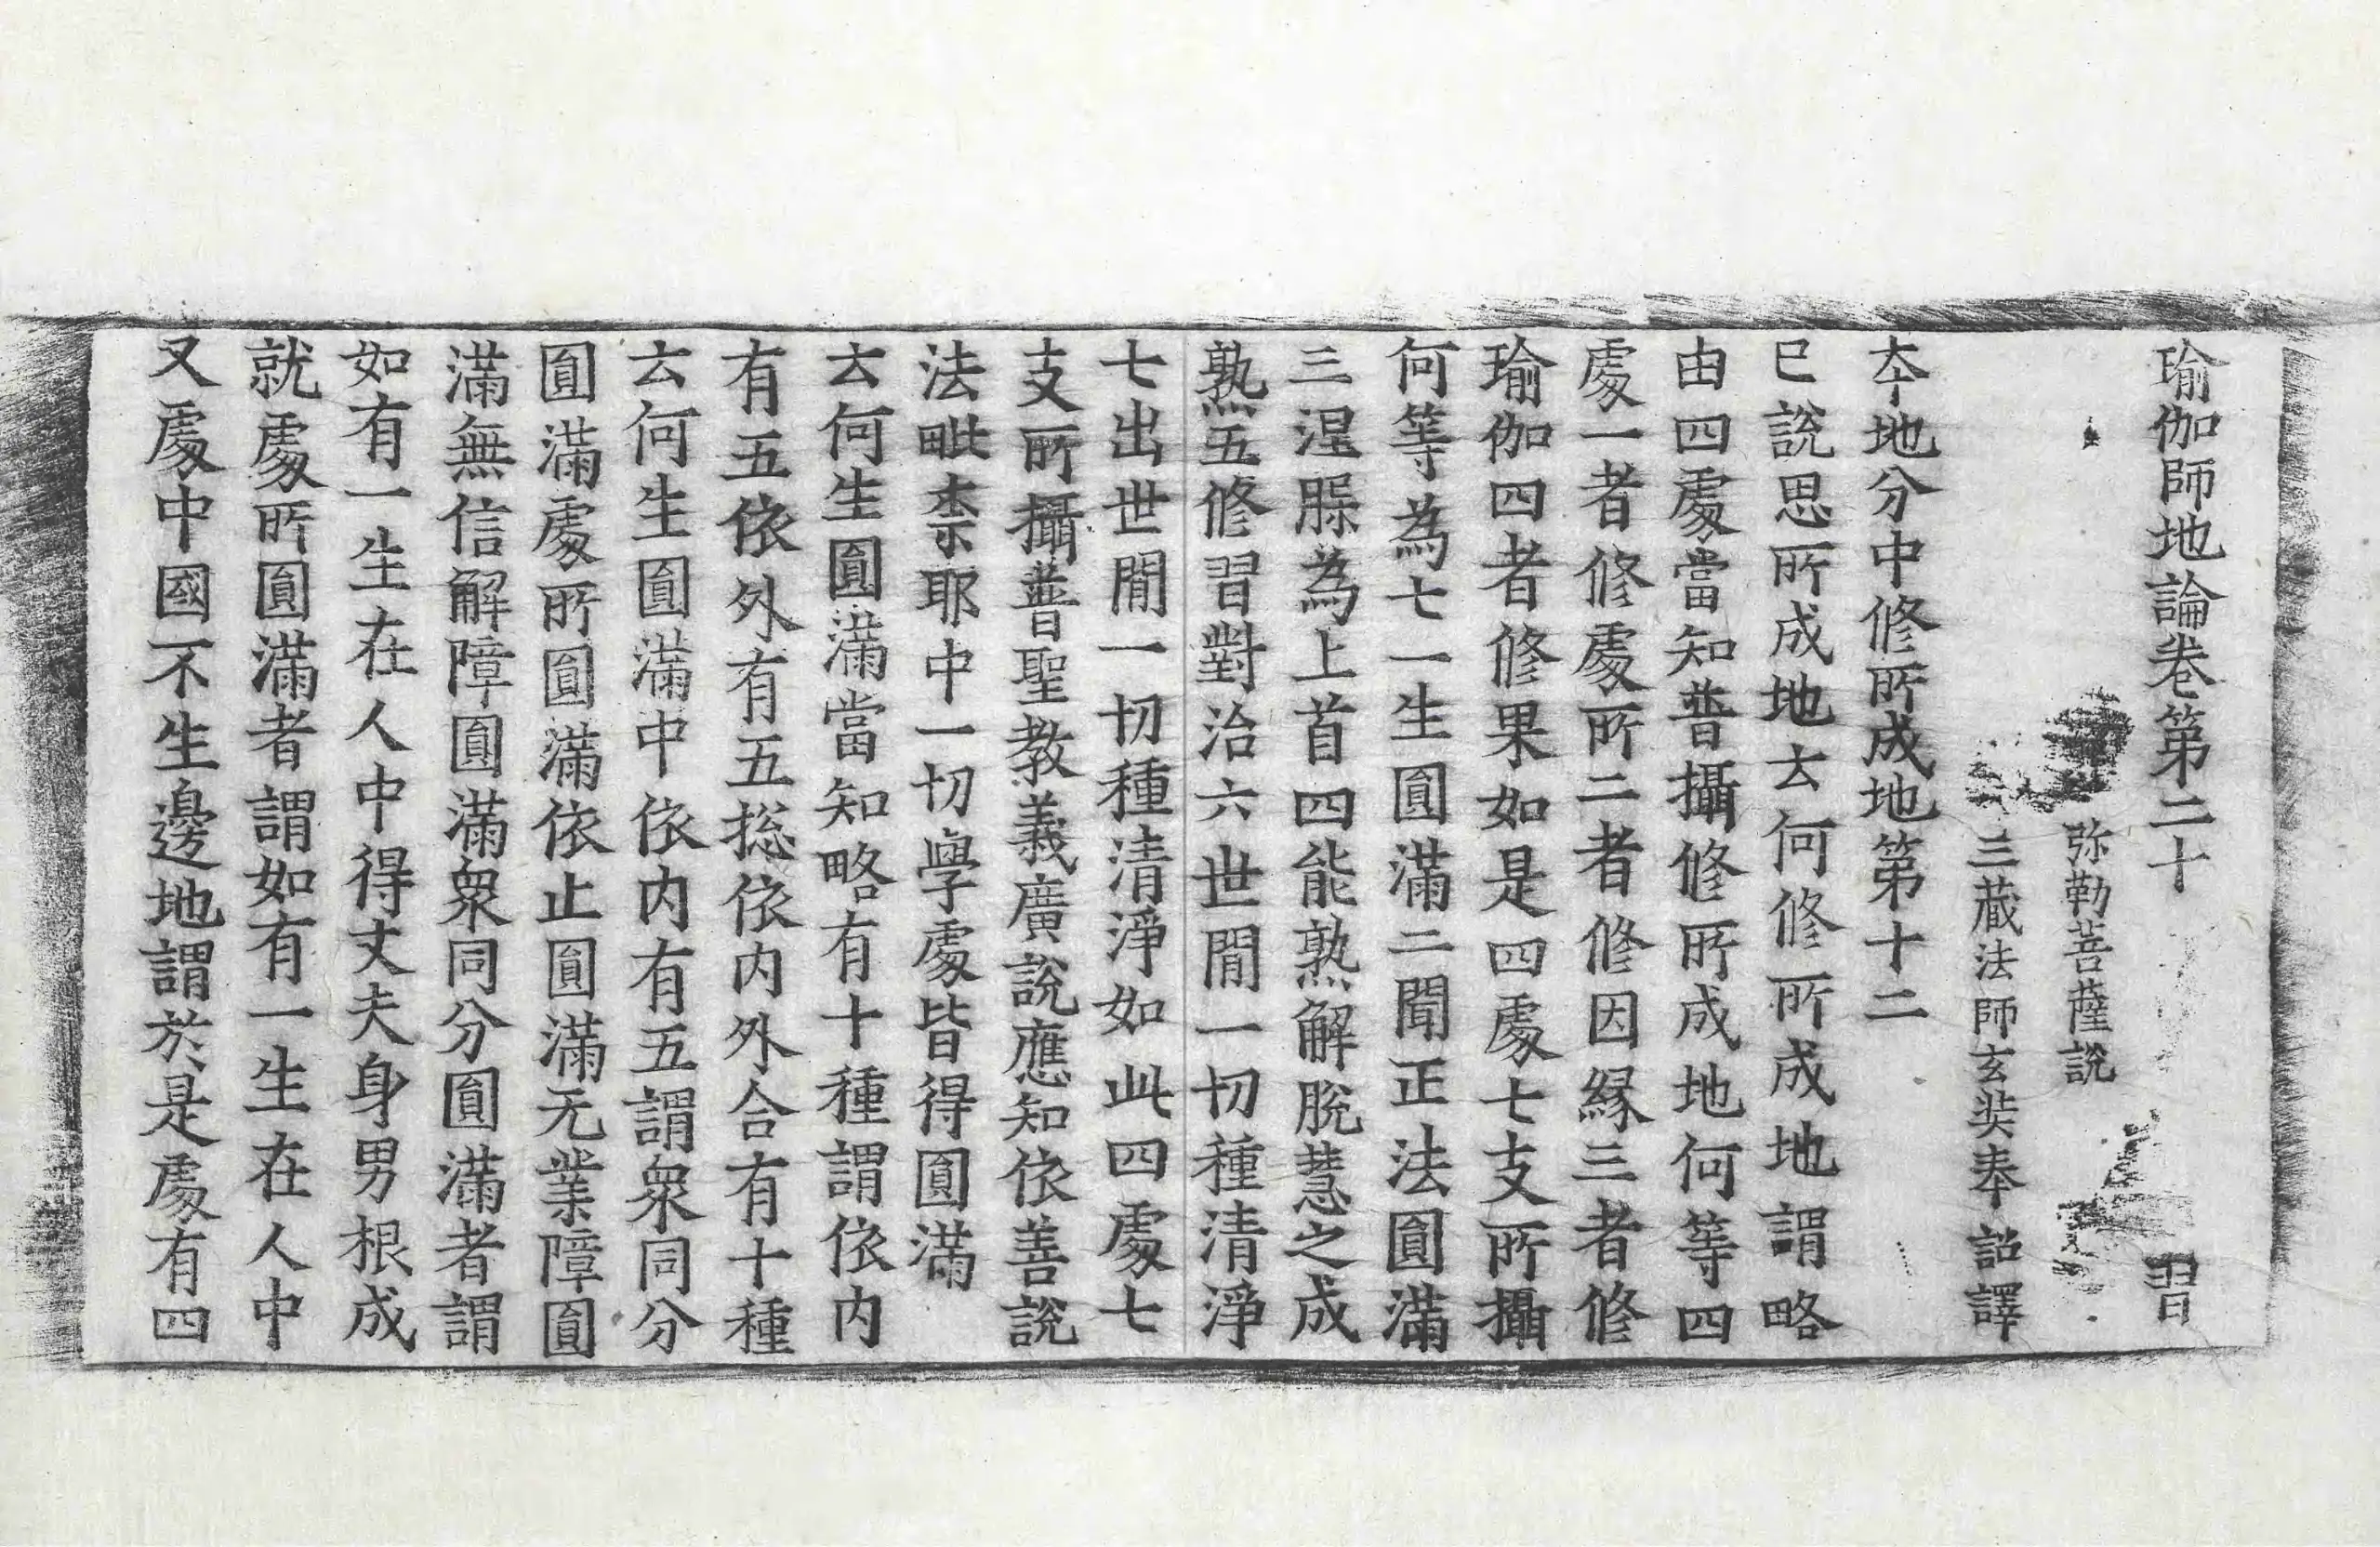 瑜伽師地論卷第二十 習
弥勒菩薩說
三藏法師玄奘奉 詔譯
夲地分中修所成地第十二
已說思所成地云何修所成地謂略
由四處當知普攝修所成地何等四
處一者修處所二者修因緣三者修
瑜伽四者修果如是四處七支所攝
何等為七一生圓滿二聞正法圓滿
三涅槃為上首四能熟解脫慧之成
熟五修習對治六世閒一切種清淨
七出世閒一切種清淨如此四處七
支所攝普聖教義廣說應知依善說
法毗柰耶中一切學處皆得圓滿
云何生圓滿當知略有十種謂依內
有五依外有五緫依內外合有十種
云何生圓滿中依內有五謂衆同分
圓滿處所圓滿依止圓滿无業障圓
滿無信解障圓滿衆同分圓滿者謂
如有一生在人中得丈夫身男根成
就處所圓滿者謂如有一生在人中
又處中國不生邊地謂於是處有四